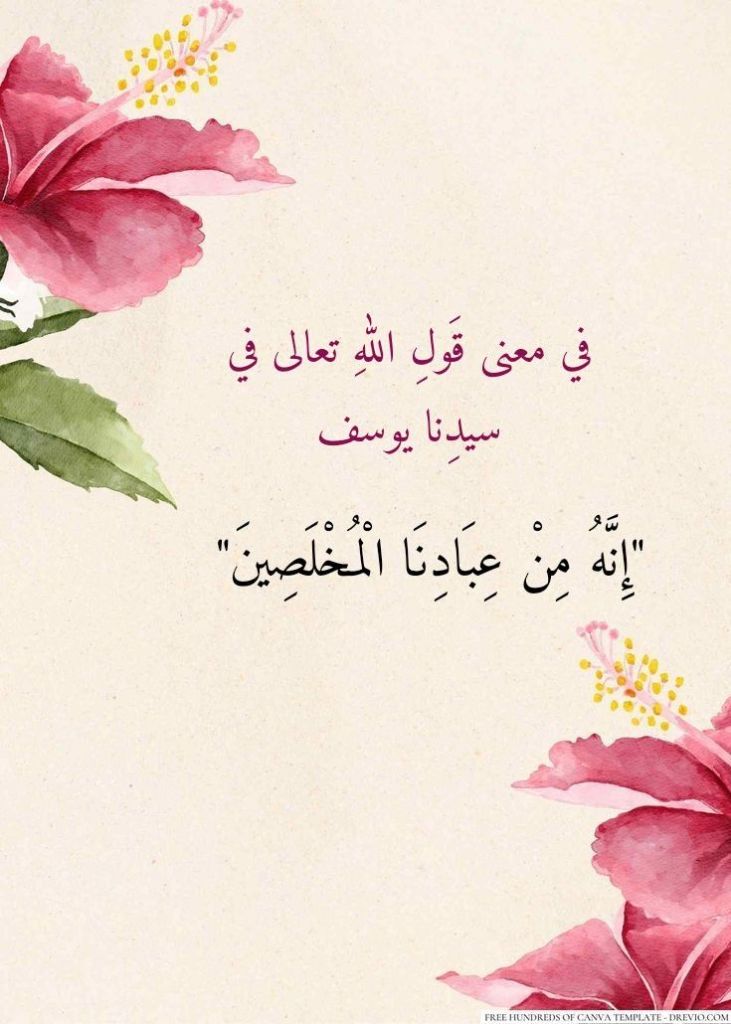 في معنى قَولِ اللهِ تعالى في
سيدِنا يوسف
"إِنَّهُ مِنْ عِبَادِنَا الْمُخْلَصِينَ"
FREE HUNDREDS OF CANVA TEMPLATE - DREVIO.COM